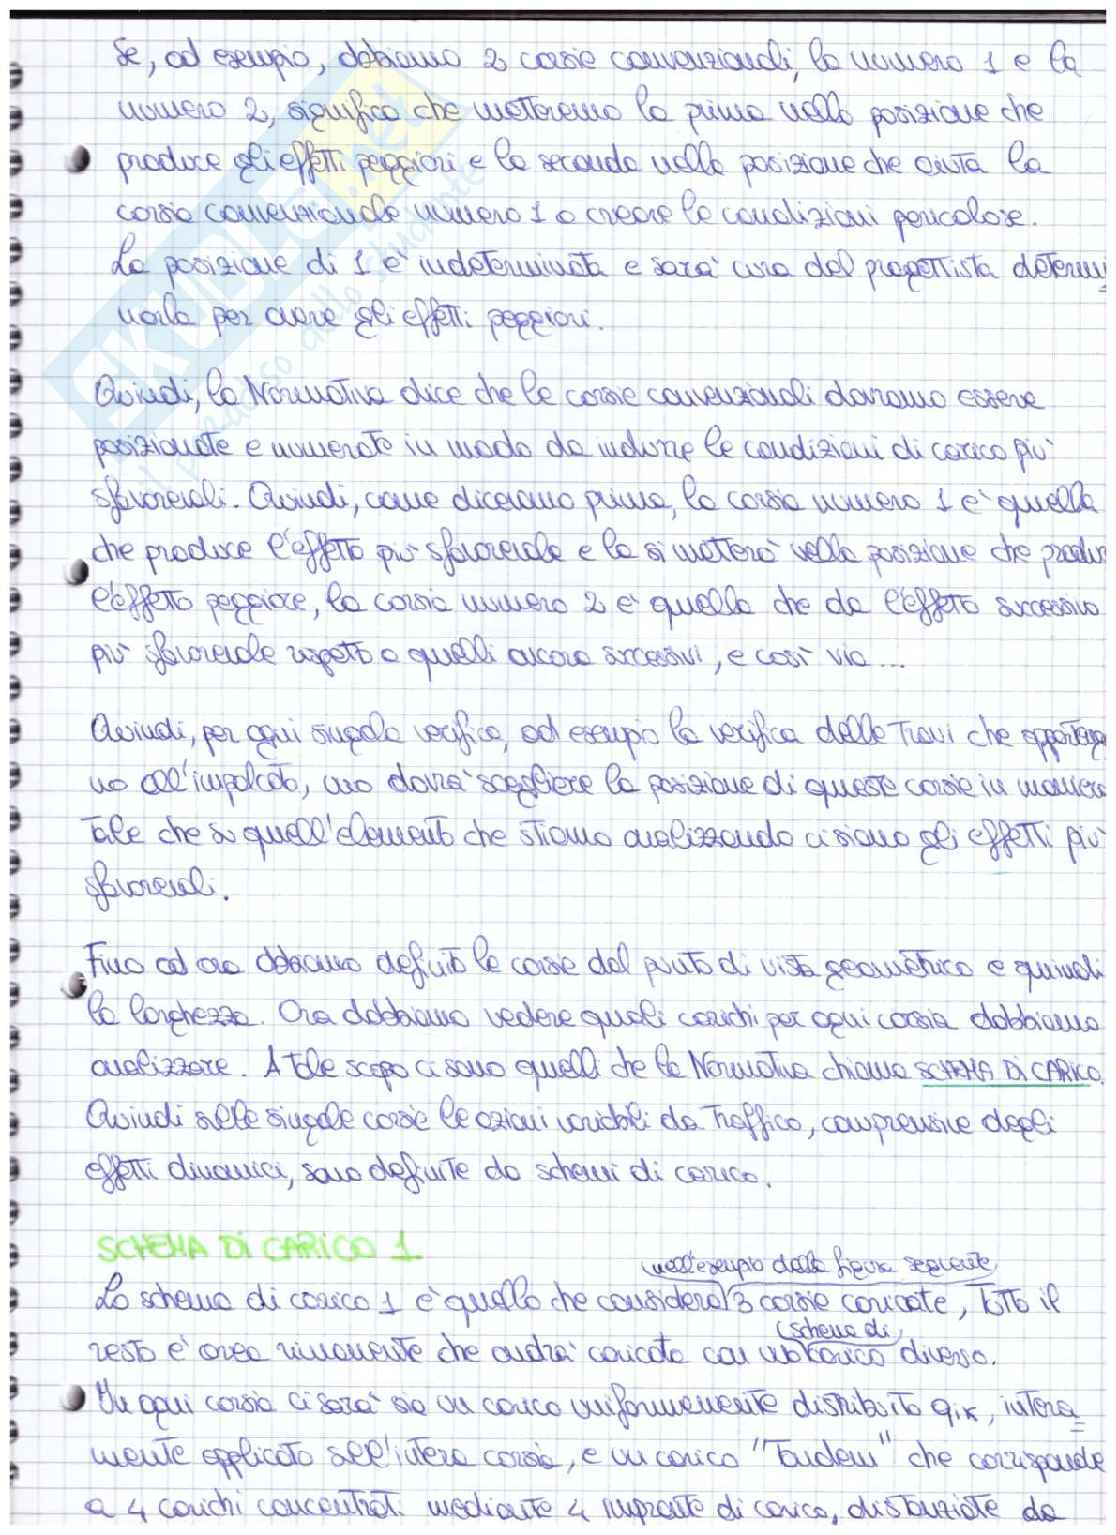 Se, ad esempio, abbiamo 2 corsie convenzionali, la numero 1 e la
numero 2, significa che metteremo la prima nella posizione che
produce gli effetti peggiori e la seconda nella posizione che aiuta la
corsia convenzionale numero 1 a creare le condizioni pericolose.
La posizione di 1 e' indeterminata e sara' cura del progettista determi
narla per avere gli effetti peggiori.
Quindi, la Normativa dice che le corsie convenzionali dovranno essere
posizionate e numerate in modo da indurre le condizioni di carico piu'
sfavorevoli. Quindi, come dicevamo prima, la corsia numero 1 e' quella
che produce l'effetto piu' sfavorevole e la si mettera' nella posizione che produ
l'effetto peggiore, la corsia numero 2 e' quella che da l'effetto successivo
piu' sfavorevole rispetto a quelli ancora successivi, e cosi' via...
Quindi, per ogni singola verifica, ad esempio la verifica delle travi che apparteng
no all'impalcato, uno dovra' scegliere la posizione di queste corsie in maniera
tale che su quell'elemento che stiamo analizzando ci siano gli effetti piu'
sfavorevoli.
Fino ad ora abbiamo definito le corsie dal punto di vista geometrico e quindi
la larghezza. Ora dobbiamo vedere quali carichi per ogni corsia dobbiamo
analizzare. A tale scopo ci sono quelli che la Normativa chiama SCHEMA DI CARICO.
Quindi sulle singole corsie le azioni variabili da traffico, comprensive degli
effetti dinamici, sono definite da schemi di carico.
SCHEMA DI CARICO 1
nell'esempio della figura seguente
Lo schema di carico 1 e' quello che considera 3 corsie caricate, tutto il
schema di
resto e' area rimanente che andra' caricata con un carico diverso.
In ogni corsia ci sara' sia un carico uniformemente distribuito qik, intera
mente applicato sull'intera corsia, e un carico "Tandem" che corrisponde
a 4 carichi concentrati mediante 4 impronte di carico, distanziate da